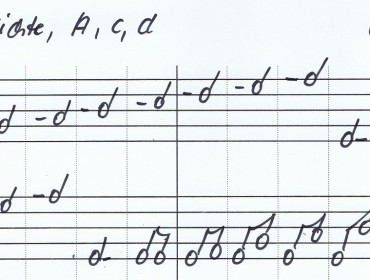 ichte, A, c, d